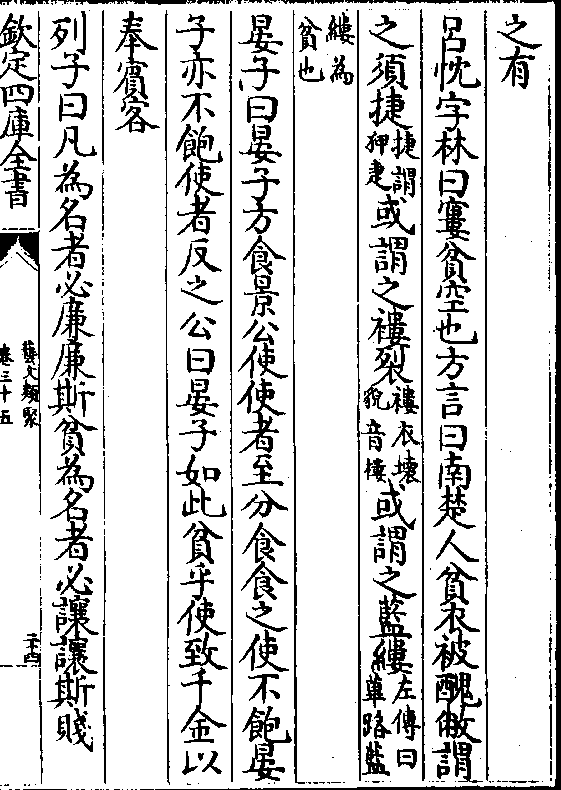 之有
呂忱字林曰寠貧空也方言曰南楚人貧衣被醜敝謂
之須捷捷謂狎疌或謂之褸裂褸衣壞貌音棲或謂之藍縷左傳曰蓽路藍
縷為貧也
晏子曰晏子方食景公使使者至分食食之使不飽晏
子亦不飽使者反之公曰晏子如此貧乎使致千金以
奉賓客
列子曰凡為名者必廉廉斯貧為名者必讓讓斯賤
欽定四庫全書
藝文類聚
卷三十五
二十四